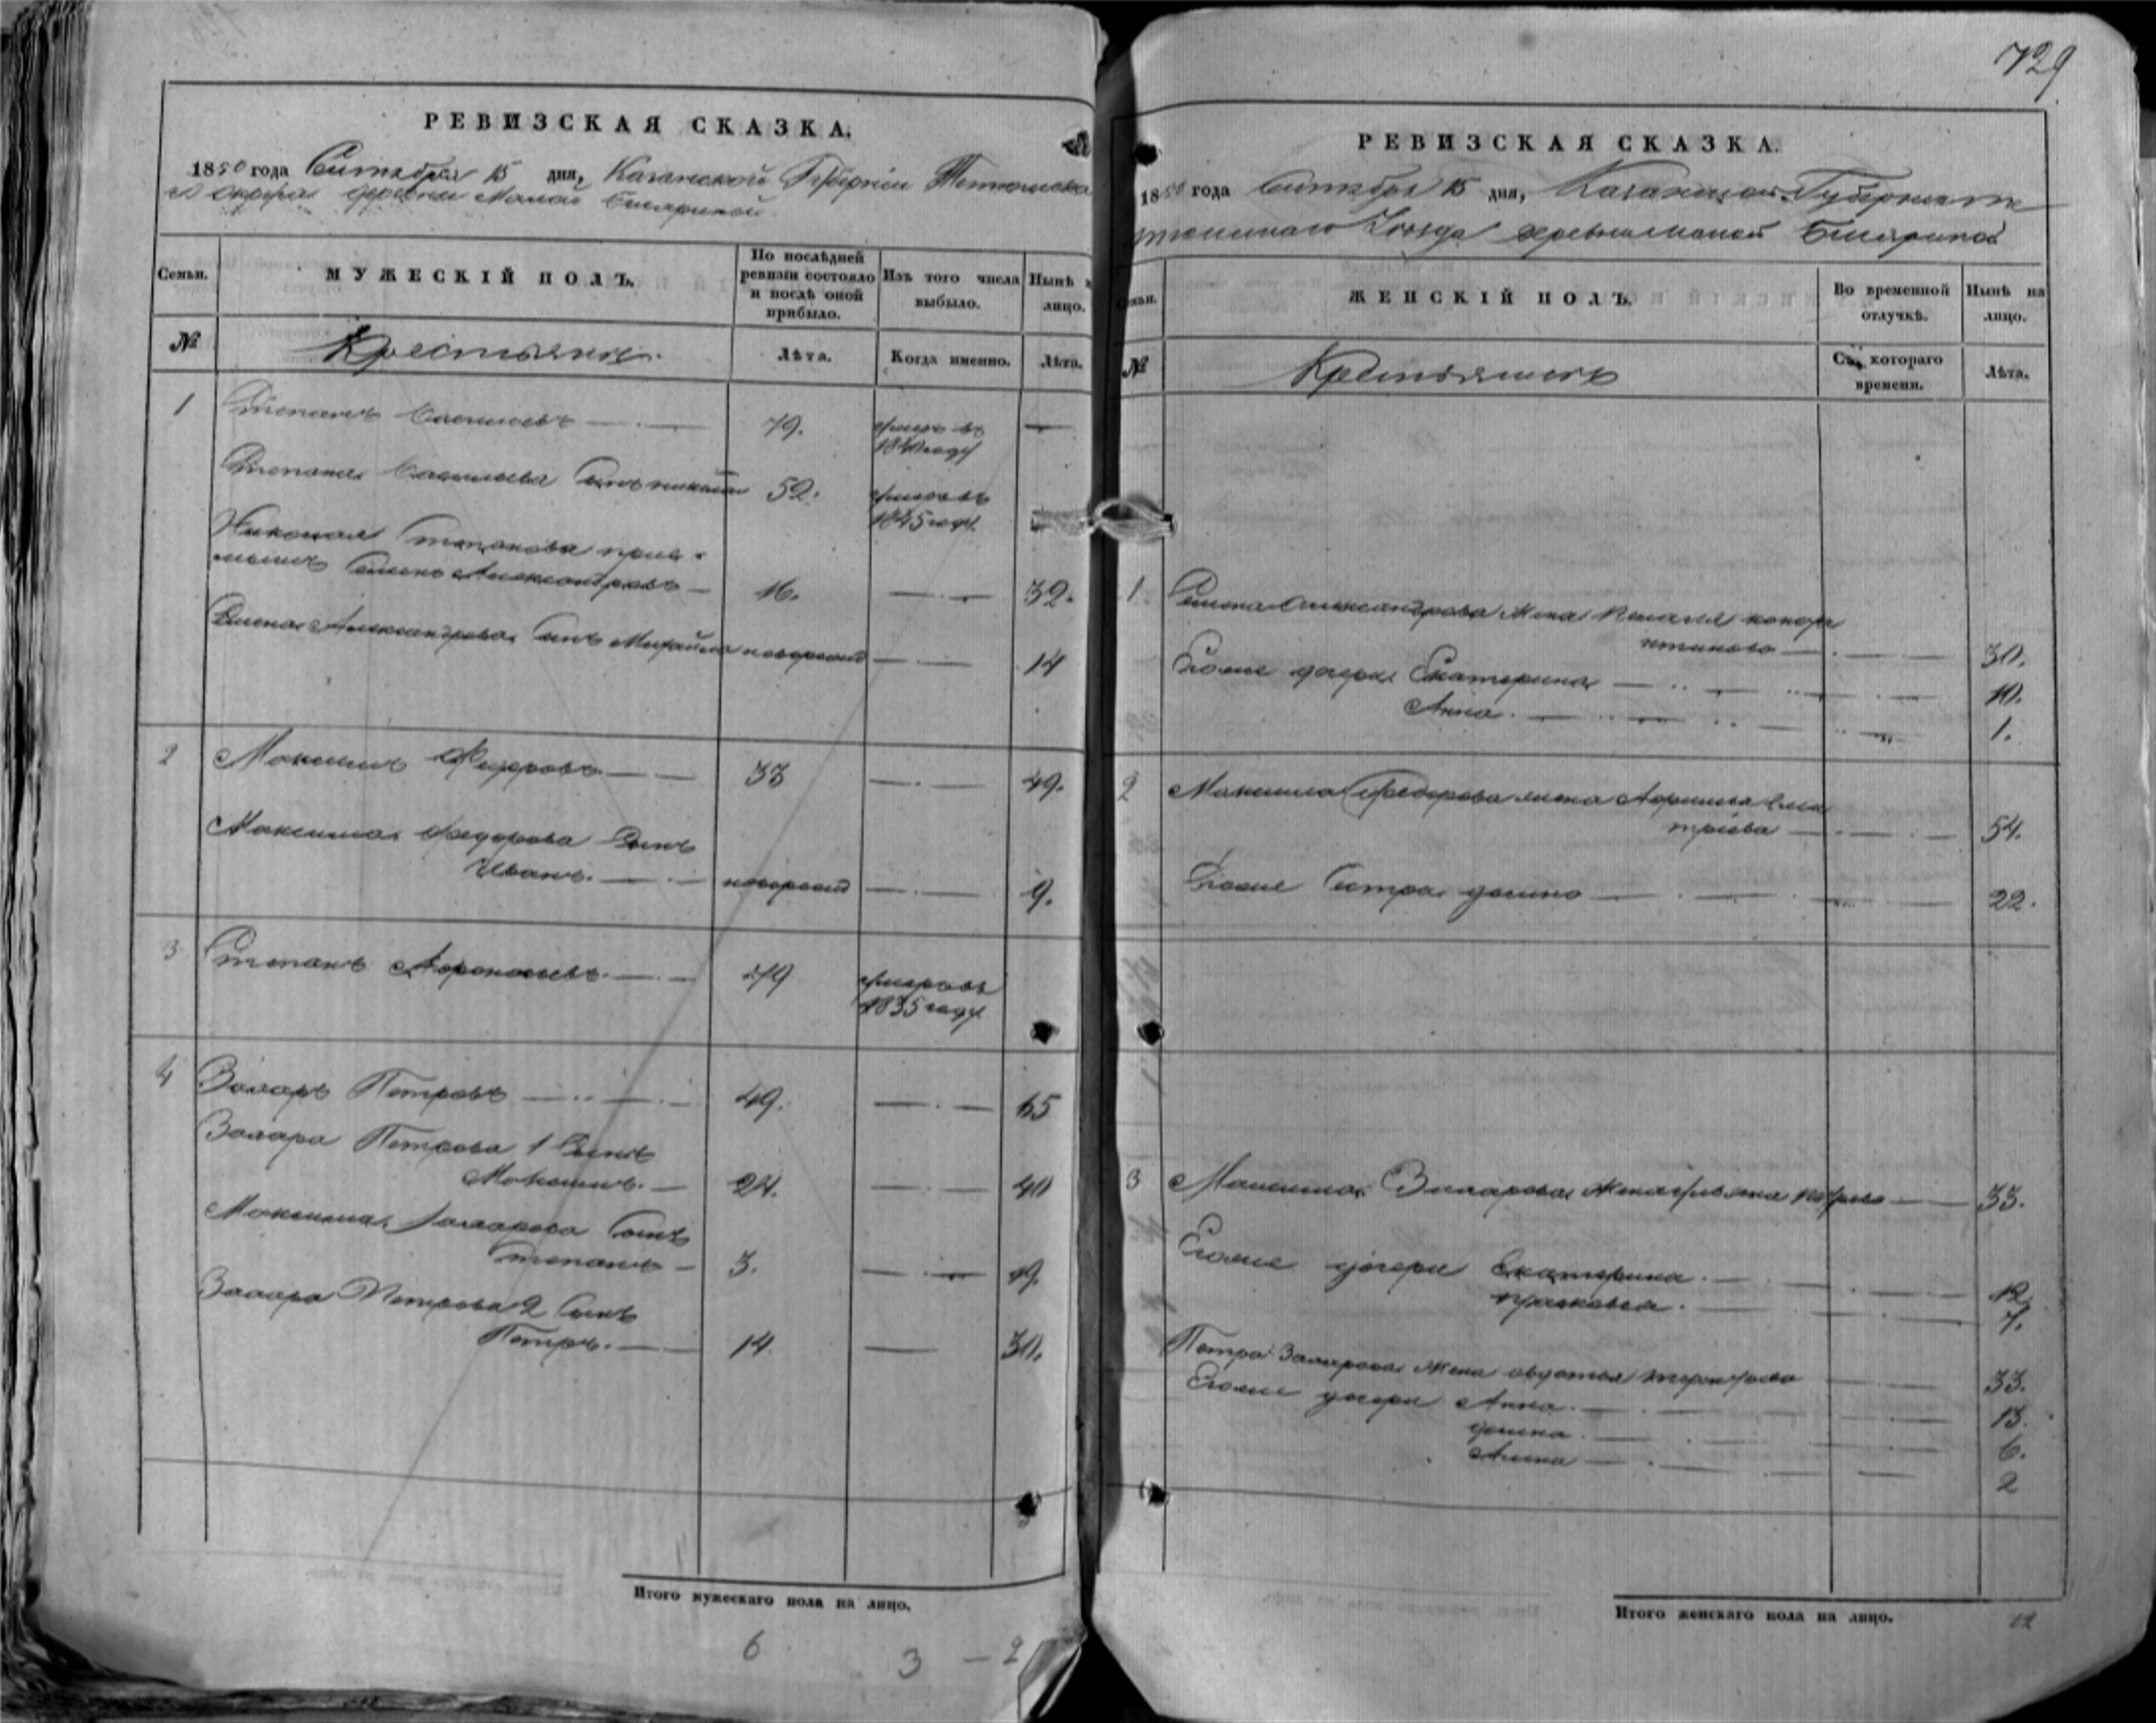 729
РЕВИЗСКАЯ СКАЗКА.
1850 года Сентября 15 дня, Казанской Губернии Тетюшска
го округа деревни Малой
Семьи.
МУЖЕСКІЙ ПОЛЪ.
По послѣдней ревизіи состояло и послѣ оной прибыло.
Изъ того числа выбыло.
Нынѣ на лицо.
№
Крестьяне.
Лѣта.
Когда именно.
Лѣта.
1 Степанъ Васильевъ 79. умеръ въ 1841 году
Степана Васильева сынъ Николай 52. умеръ въ 1845 году
Николая Степанова прие-
мышъ Семенъ Александровъ 16. 32.
Семена Александрова сынъ Михайла новорожд 14
2 Максимъ Федоровъ 33 49.
Максима Федорова сынъ
Иванъ. новорожд 9.
3 Степанъ Афонасьевъ. 79 умеръ въ 1835 году
4 Захаръ Петровъ 49. 65
Захара Петрова 1 сынъ
Максимъ. 24. 40
Максима Захарова сынъ
Степанъ 3. 19.
Захара Петрова 2 сынъ
Петръ. 14. 30.
Итого мужескаго пола на лицо.
6 3 - 2
РЕВИЗСКАЯ СКАЗКА.
1850 года Сентября 15 дня, Казанской Губернии Те
тюшскаго Уезда деревни Малой
Семьи.
ЖЕНСКІЙ ПОЛЪ.
Во временной отлучкѣ.
Нынѣ на лицо.
№
Съ котораго времени.
Лѣта.
1 Семена Александрова жена Пелагея
30.
Егоже дочери Екатерина 10.
Анна. 1.
2 Максима Федорова жена
54.
Егоже сестра 22.
3 Максима Захарова жена 33.
Егоже дочери Екатерина. 12.
Прасковья. 7.
Петра Захарова жена Авдотья 33.
Егоже дочери Анна. 13.
6.
2
Итого женскаго пола на лицо. 12